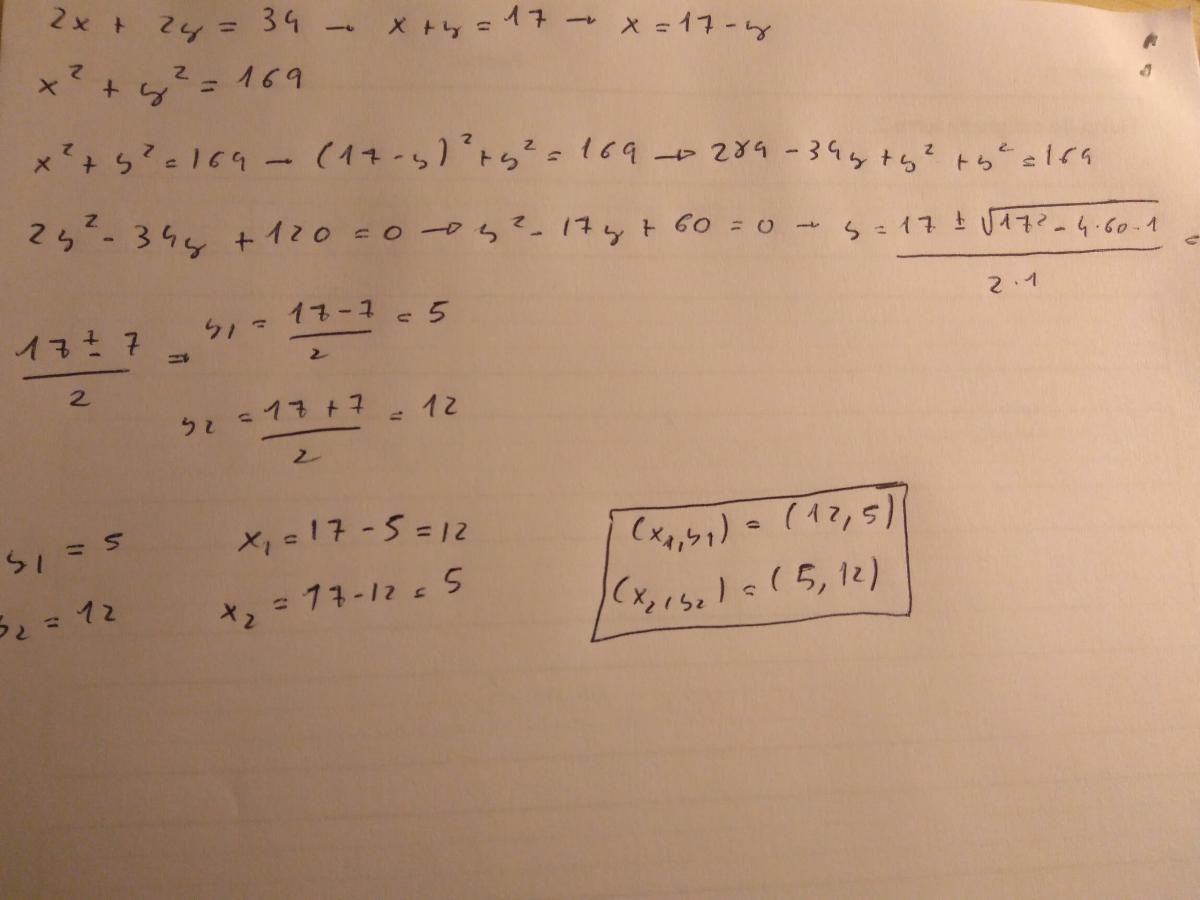 2x + 2y = 34 → x + y = 17 → x = 17 - y
x² + y² = 169
x² + y² = 169 → (17 - y)² + y² = 169 → 289 - 34y + y² + y² = 169
2y² - 34y + 120 = 0 → y² - 17y + 60 = 0 → y = (17 ± √(17² - 4·60·1)) / (2·1) =
(17 ± 7) / 2 ⇒ y₁ = (17 - 7) / 2 = 5
y₂ = (17 + 7) / 2 = 12
y₁ = 5 x₁ = 17 - 5 = 12 (x₁, y₁) = (12, 5)
y₂ = 12 x₂ = 17 - 12 = 5 (x₂, y₂) = (5, 12)